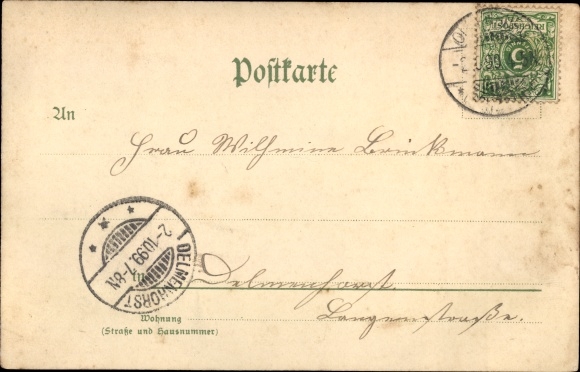 Postkarte
REICHSPOST
5
99
An
Frau Wilhmine Brinkmann
DELMENHORST
2-10.99.7-8N.
in
Delmenhorst.
Wohnung
(Straße und Hausnummer)
Langenstraße.